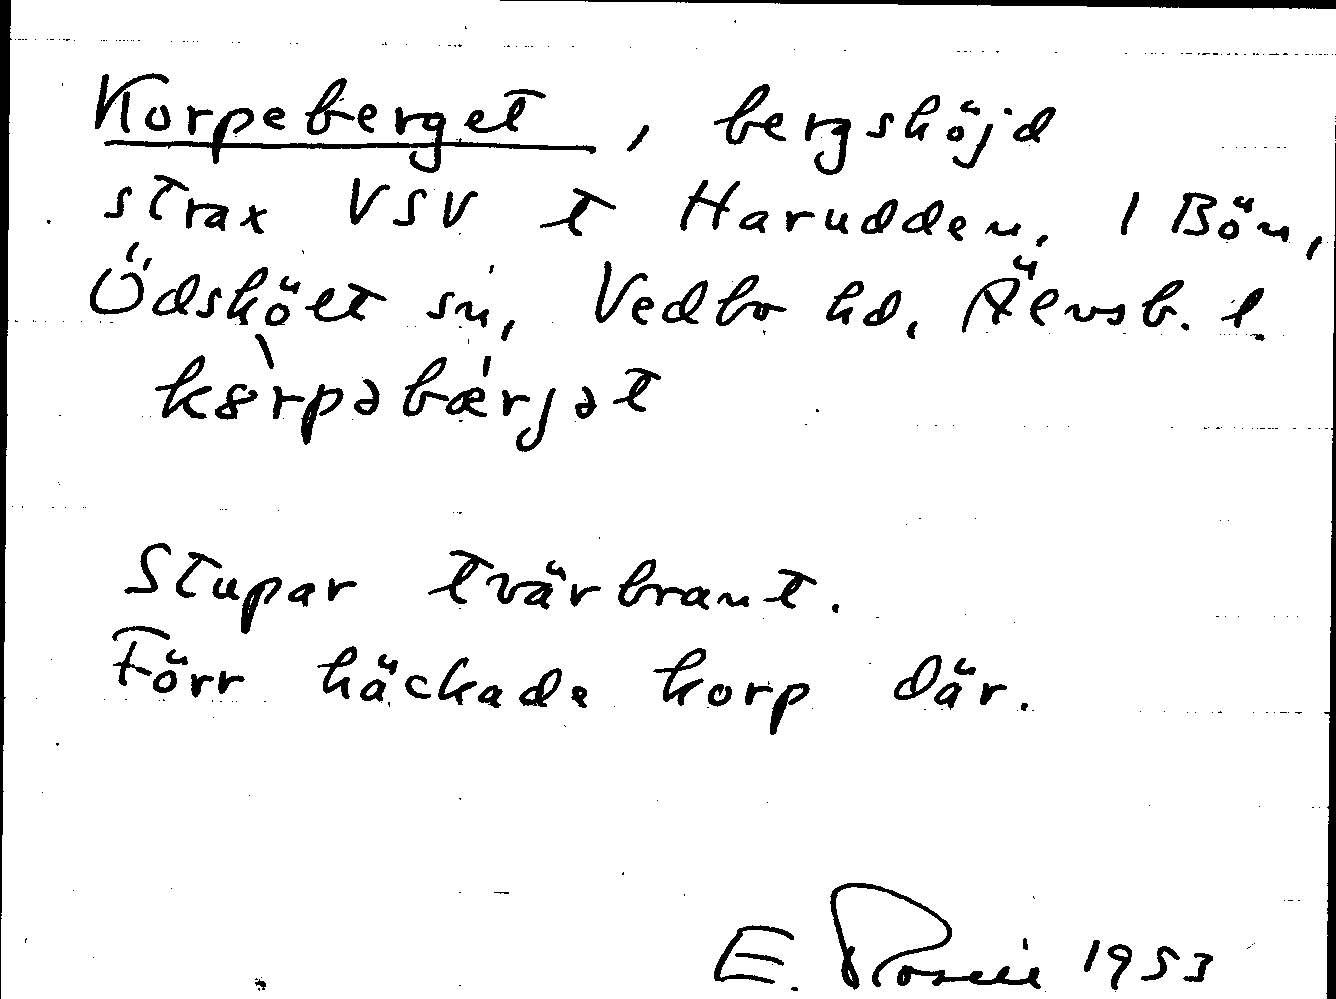 Korpeberget, bergshöjd
strax VSV t Harudden. 1 Bön,
Ödskölt sn, Vedbo hd. Älvsb. l.
kȣ̀rpəbǽrjət
Stupar tvärbrant.
Förr häckade korp där.
E. 1953